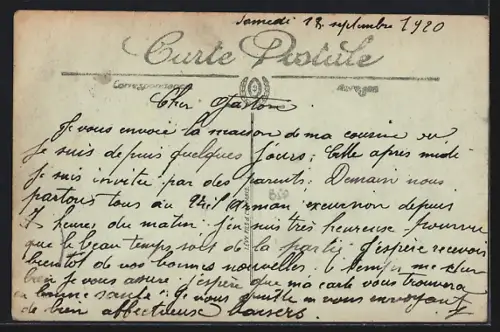 Samedi 18 septembre 1920
Carte Postale
Correspondance
Cher Gaston
Je vous envoie la maison de ma cousine ou
je suis depuis quelques jours, Cette après midi
je suis invitée par des parents. Demain nous
partons tous au Vieil Arman excursion depuis
7 heures du matin. J'en suis très heureuse pourvu
que le beau temps soit de la partie. J'espère recevoir
bientôt de vos bonnes nouvelles, le temps me dure
bien je vous assure. J'espère que ma carte vous trouvera
en bonne santé; Je vous quitte en vous envoyant
de bien affectueux baisers.